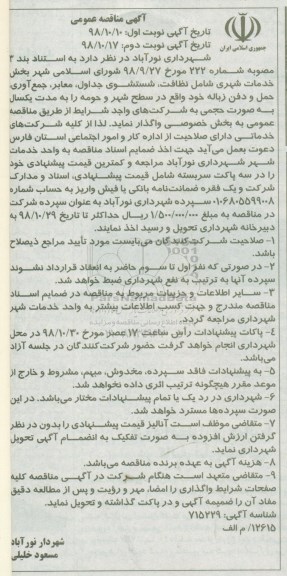 جمهوری اسلامی ایران
آگهی مناقصه عمومی
تاریخ آگهی نوبت اول: ۹۸/۱۰/۱۰
تاریخ آگهی نوبت دوم: ۹۸/۱۰/۱۷
شهرداری نورآباد در نظر دارد به استناد بند ۳
مصوبه شماره ۲۲۲ مورخ ۹۸/۹/۲۷ شورای اسلامی شهر بخش
خدمات شهری شامل نظافت، شستشوی جداول، معابر، جمع‌آوری
حمل و دفن زباله خود واقع در سطح شهر و حومه را به مدت یکسال
به صورت حجمی به شرکت‌های واجد شرایط از طریق مناقصه
عمومی به بخش خصوصی واگذار نماید. لذا از کلیه شرکت‌های
خدماتی دارای صلاحیت از اداره کار و امور اجتماعی استان فارس
دعوت بعمل می‌آید جهت اخذ ضمایم اسناد مناقصه به واحد خدمات
شهر شهرداری نورآباد مراجعه و کمترین قیمت پیشنهادی خود
را در سه پاکت سربسته شامل قیمت پیشنهادی، اسناد و مدارک
شرکت و یک فقره ضمانت‌نامه بانکی یا فیش واریز به حساب شماره
۰۱۰۶۸۰۵۵۹۹۰۰۸ سپرده شهرداری نورآباد به عنوان سپرده شرکت
در مناقصه به مبلغ ۱/۵۰۰/۰۰۰/۰۰۰ ریال حداکثر تا تاریخ ۹۸/۱۰/۲۹ به
دبیرخانه شهرداری تحویل و رسید اخذ نمایند.
۱- صلاحیت شرکت کنندگان می‌بایست مورد تأیید مراجع ذیصلاح
باشد.
۲- در صورتی که نفر اول تا سوم حاضر به انعقاد قرارداد نشوند
سپرده آنها به ترتیب به نفع شهرداری ضبط خواهد شد.
۳- سایر اطلاعات و جزییات مربوط به مناقصه در ضمایم اسناد
مناقصه مندرج و جهت کسب اطلاعات بیشتر به واحد خدمات شهر
شهرداری مراجعه گردد.
۴- پاکات پیشنهادات رأس ساعت ۱۷ عصر مورخ ۹۸/۱۰/۳۰ در محل
شهرداری انجام خواهد گرفت حضور شرکت‌کنندگان در جلسه آزاد
می‌باشد.
۵- به پیشنهادات فاقد سپرده، مخدوش، مبهم، مشروط و خارج از
موعد مقرر هیچگونه ترتیب اثری داده نخواهد شد.
۶- شهرداری در رد یک یا تمام پیشنهادات مختار می‌باشد. در این
صورت سپرده‌ها مسترد خواهد شد.
۷- متقاضی موظف است آنالیز قیمت پیشنهادی را بدون در نظر
گرفتن ارزش افزوده به صورت تفکیک به انضمام آگهی تحویل
شهرداری نماید.
۸- هزینه آگهی به عهده برنده مناقصه می‌باشد.
۹- متقاضی متعهد است هنگام شرکت در آگهی مناقصه کلیه
صفحات شرایط واگذاری را امضا، مهر و رؤیت و پس از مطالعه دقیق
مفاد آن را ضمیمه آگهی و در پاکت گذاشته و تحویل نماید.
شناسه آگهی: ۷۱۵۲۲۹
۱۲۶۱۵/ م الف
شهردار نورآباد
مسعود خلیلی